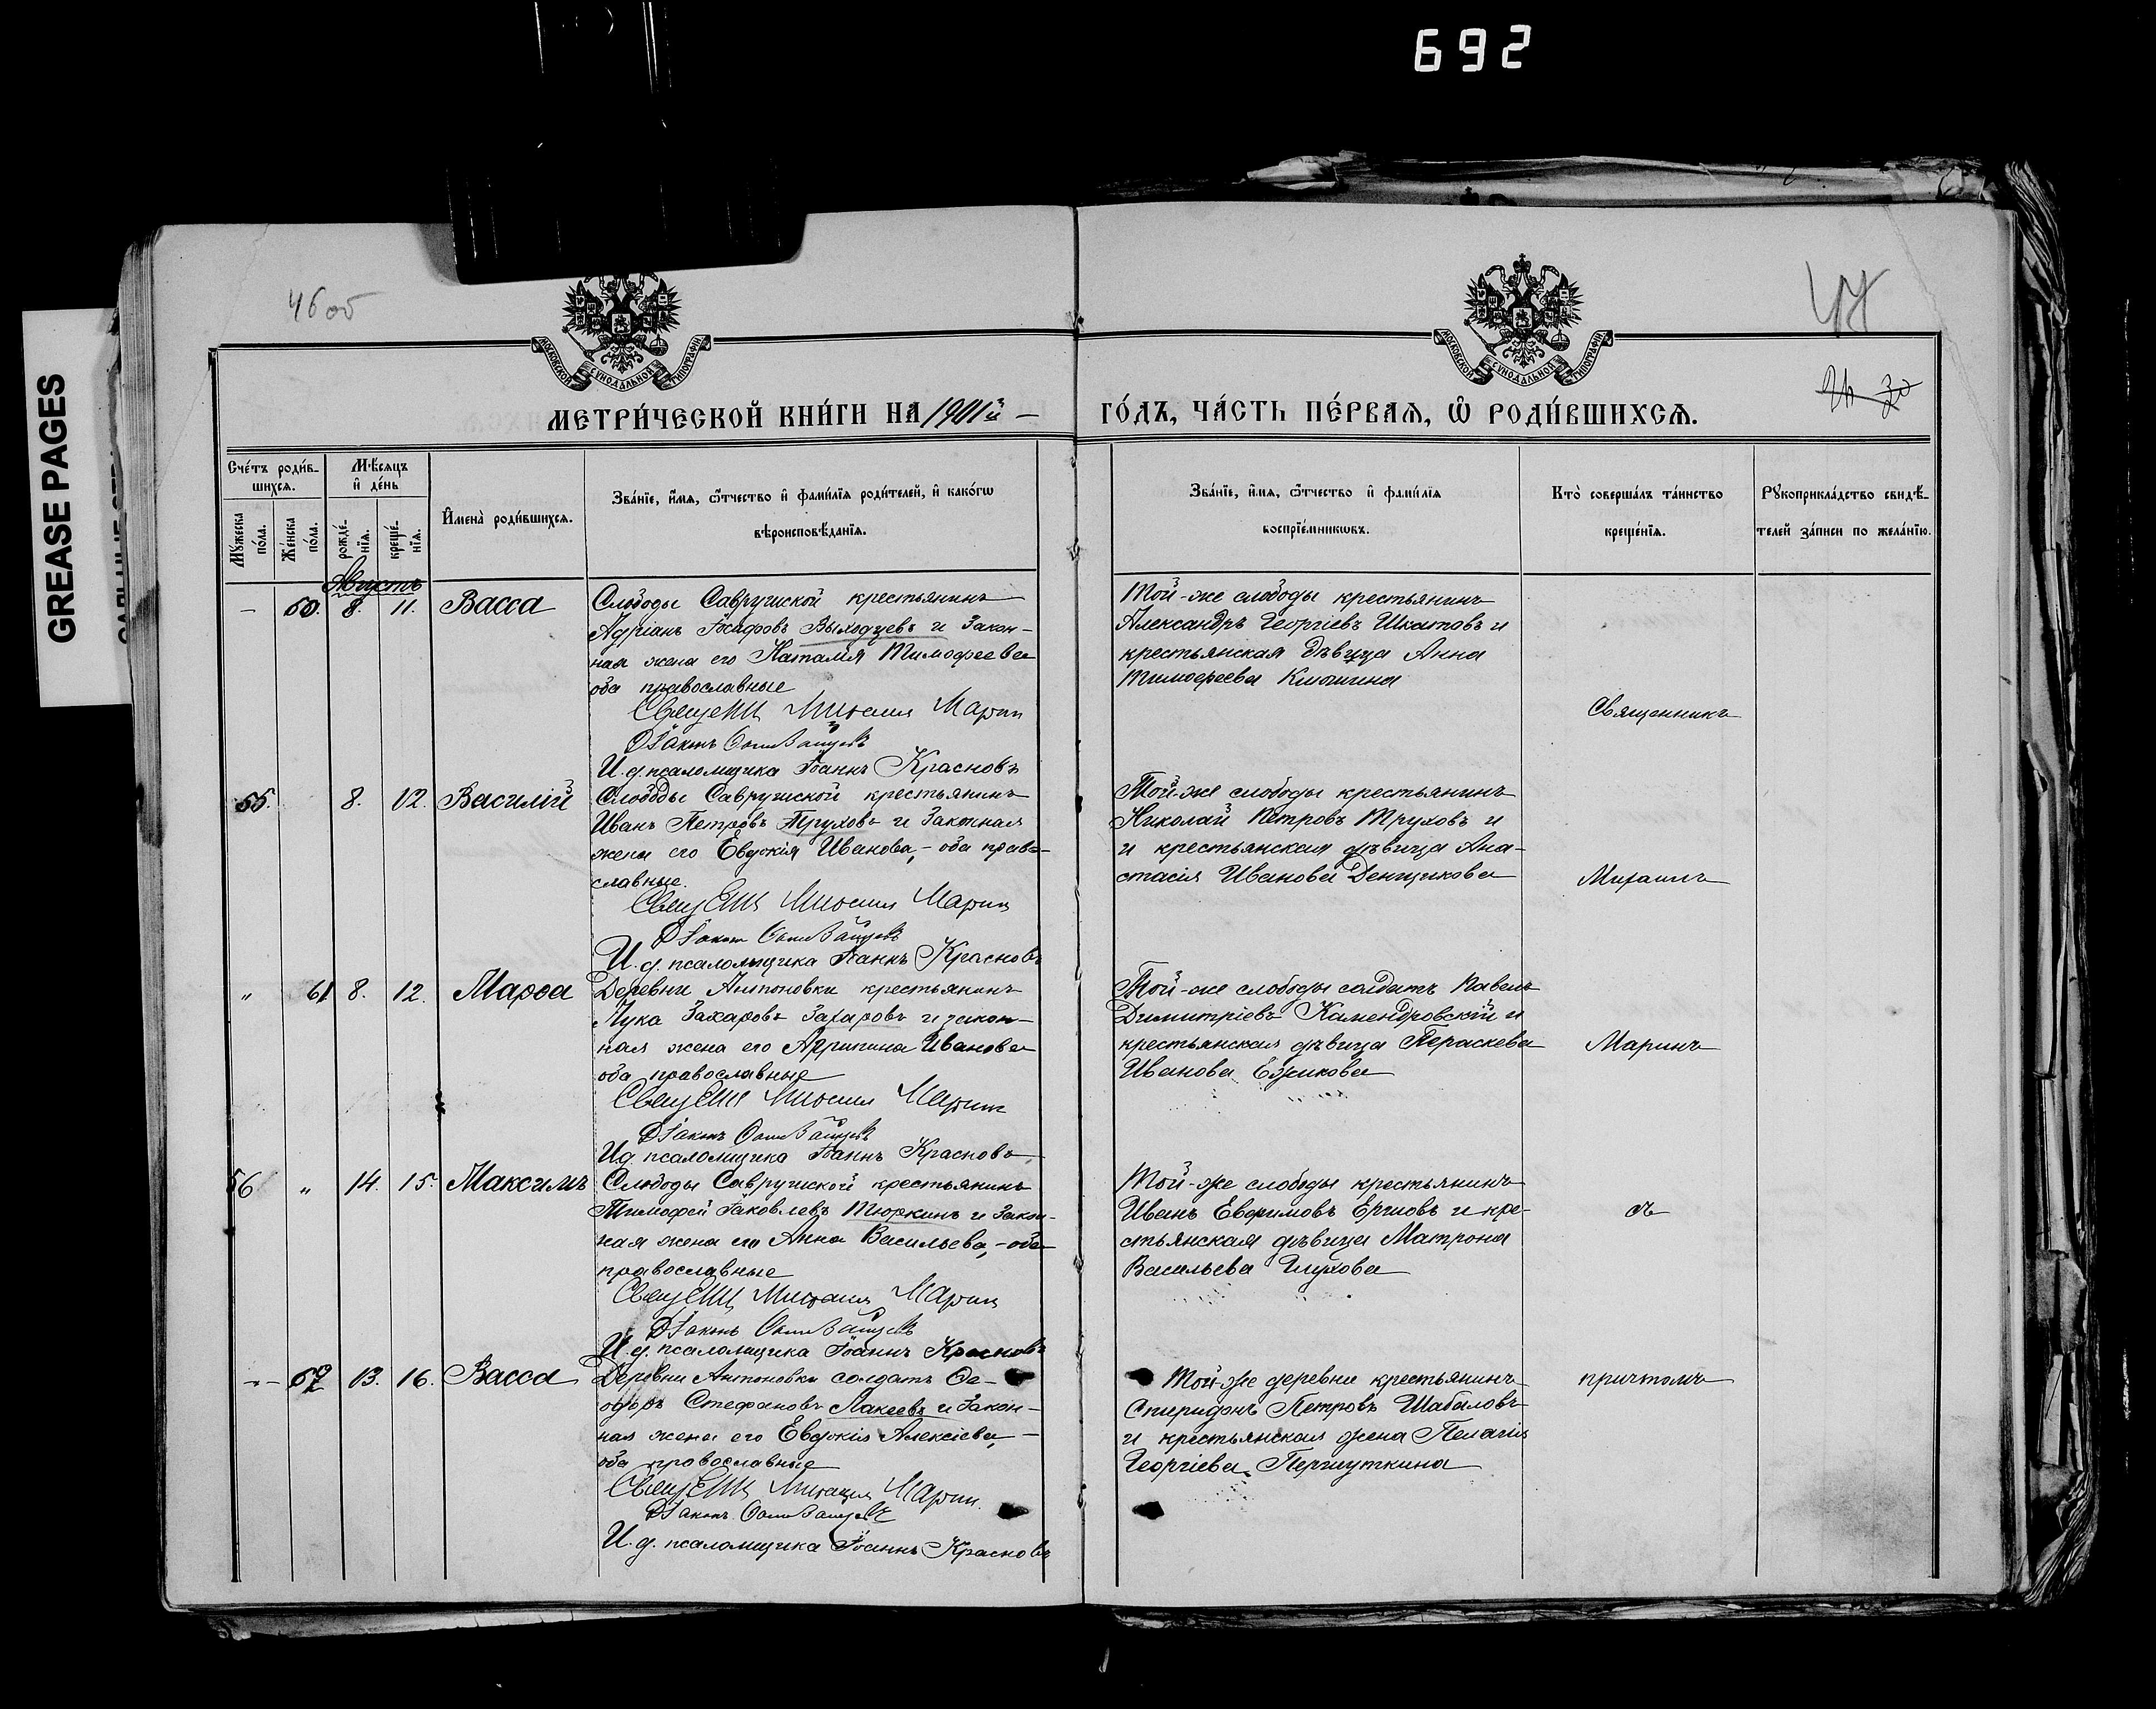 692
GREASE PAGES
46 об
47
МОСКОВСКОЙ СѴНОДАЛЬНОЙ ТИПОГРАФІИ
МОСКОВСКОЙ СѴНОДАЛЬНОЙ ТИПОГРАФІИ
МЕТРИ́ЧЕСКОЙ КНИ́ГИ НА 1901й —
ГО́ДЪ, ЧА́СТЬ ПЕ́РВАѦ, Ѡ҆ РОДИ́ВШИХСѦ.
Сче́тъ роди́в-
шихсѧ.
Мѣ́сѧцъ
и҆ де́нь
Мꙋ́жеска
по́ла.
Же́нска
по́ла.
рожде́-
нїѧ.
креще́-
нїѧ.
И҆мена̀ роди́вшихсѧ.
Зва́нїе, и҆́мѧ, ѻ҆́тчество и҆ фами́лїѧ роди́телей, и҆ како́гѡ
вѣроисповѣ́данїѧ.
Зва́нїе, и҆́мѧ, ѻ҆́тчество и҆ фами́лїѧ
воспрїе́мникѡвъ.
Кто̀ соверша́лъ та́инство
креще́нїѧ.
Рꙋкоприкла́дство свидѣ́-
телей за́писи по жела́нїю.
Августъ
— 60. 8. 11. Васса
Слободы Саврушской крестьянинъ
Адріанъ Іосифовъ Выходцевъ и закон-
ная жена его Наталія Тимофеева
оба православные
Священ Михаил Марин
Діаконъ
И. д. псаломщика Іоаннъ Красновъ
Той-же слободы крестьянинъ
Александръ Георгіевъ Шкатовъ и
крестьянская дѣвица Анна
Тимофеева Клюшина
Священникъ
55. 8. 12. Василій
Слободы Саврушской крестьянинъ
Иванъ Петровъ Труховъ и законная
жена его Евдокія Иванова, – оба право-
славные.
Священ Михаил Марин
Діакон
И. д. псаломщика Іоаннъ Красновъ
Той-же слободы крестьянинъ
Николай Петровъ Труховъ и
и крестьянская дѣвица Ана-
стасія Иванова Денщикова
Михаилъ
" 61 8. 12. Марѳа
Деревни Антоновки крестьянинъ
Лука Захаровъ Захаровъ и закон-
ная жена его Агрипина Иванова
оба православные
Священ Михаил Марин
Діаконъ
И.д. псаломщика Іоаннъ Красновъ
Той-же слободы солдатъ Павелъ
Димитріевъ Камендровскій и
крестьянская дѣвица Параскева
Иванова Ежикова
Маринъ
56 " 14. 15. Максимъ
Слободы Саврушской крестьянинъ
Тимофей Іаковлевъ Тюркинъ и закон-
ная жена его Анна Васильева, – оба
православные
Священ Михаил Марин
Діаконъ
И. д. псаломщика Іоаннъ Красновъ
Той-же слободы крестьянинъ
Иванъ Евфимовъ и кре-
стьянская дѣвица Матрона
Васильева Глухова
съ
— 62 13. 16. Васса
Деревни Антоновки солдатъ Ѳе-
одоръ Стефановъ Лакеевъ и закон-
ная жена его Евдокія Алексіева, –
оба православные
Священ Михаил Марин.
Діаконъ
И. д. псаломщика Іоаннъ Красновъ
Той-же деревни крестьянинъ
Спиридонъ Петровъ Шабаловъ
и крестьянская жена Пелагія
Георгіева Першуткина
причтомъ